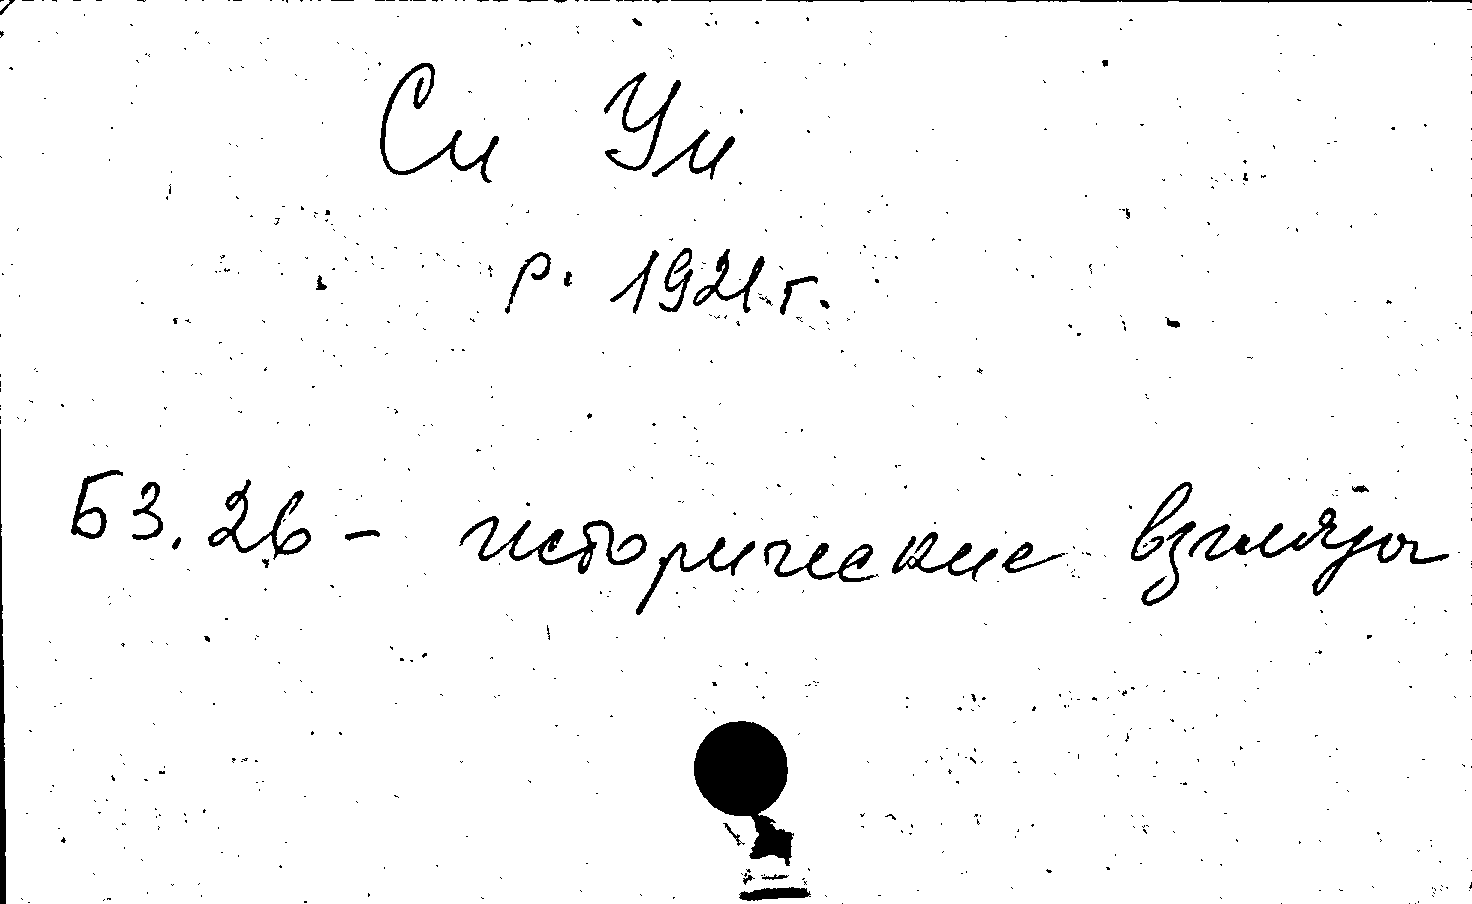 Си Уи
р. 1921 г.
Б3.2в - исторические взгляды